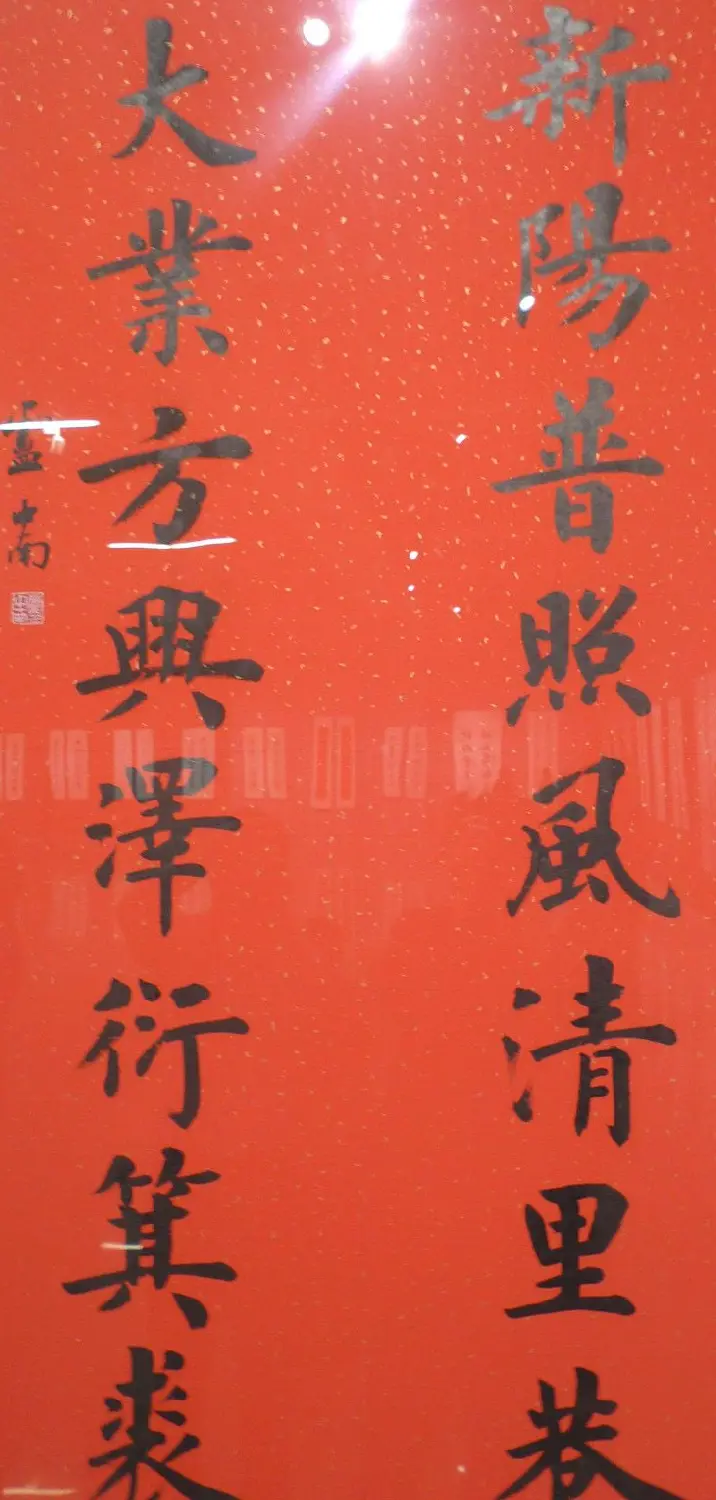 新陽普照風清里巷
大業方興澤衍箕裘